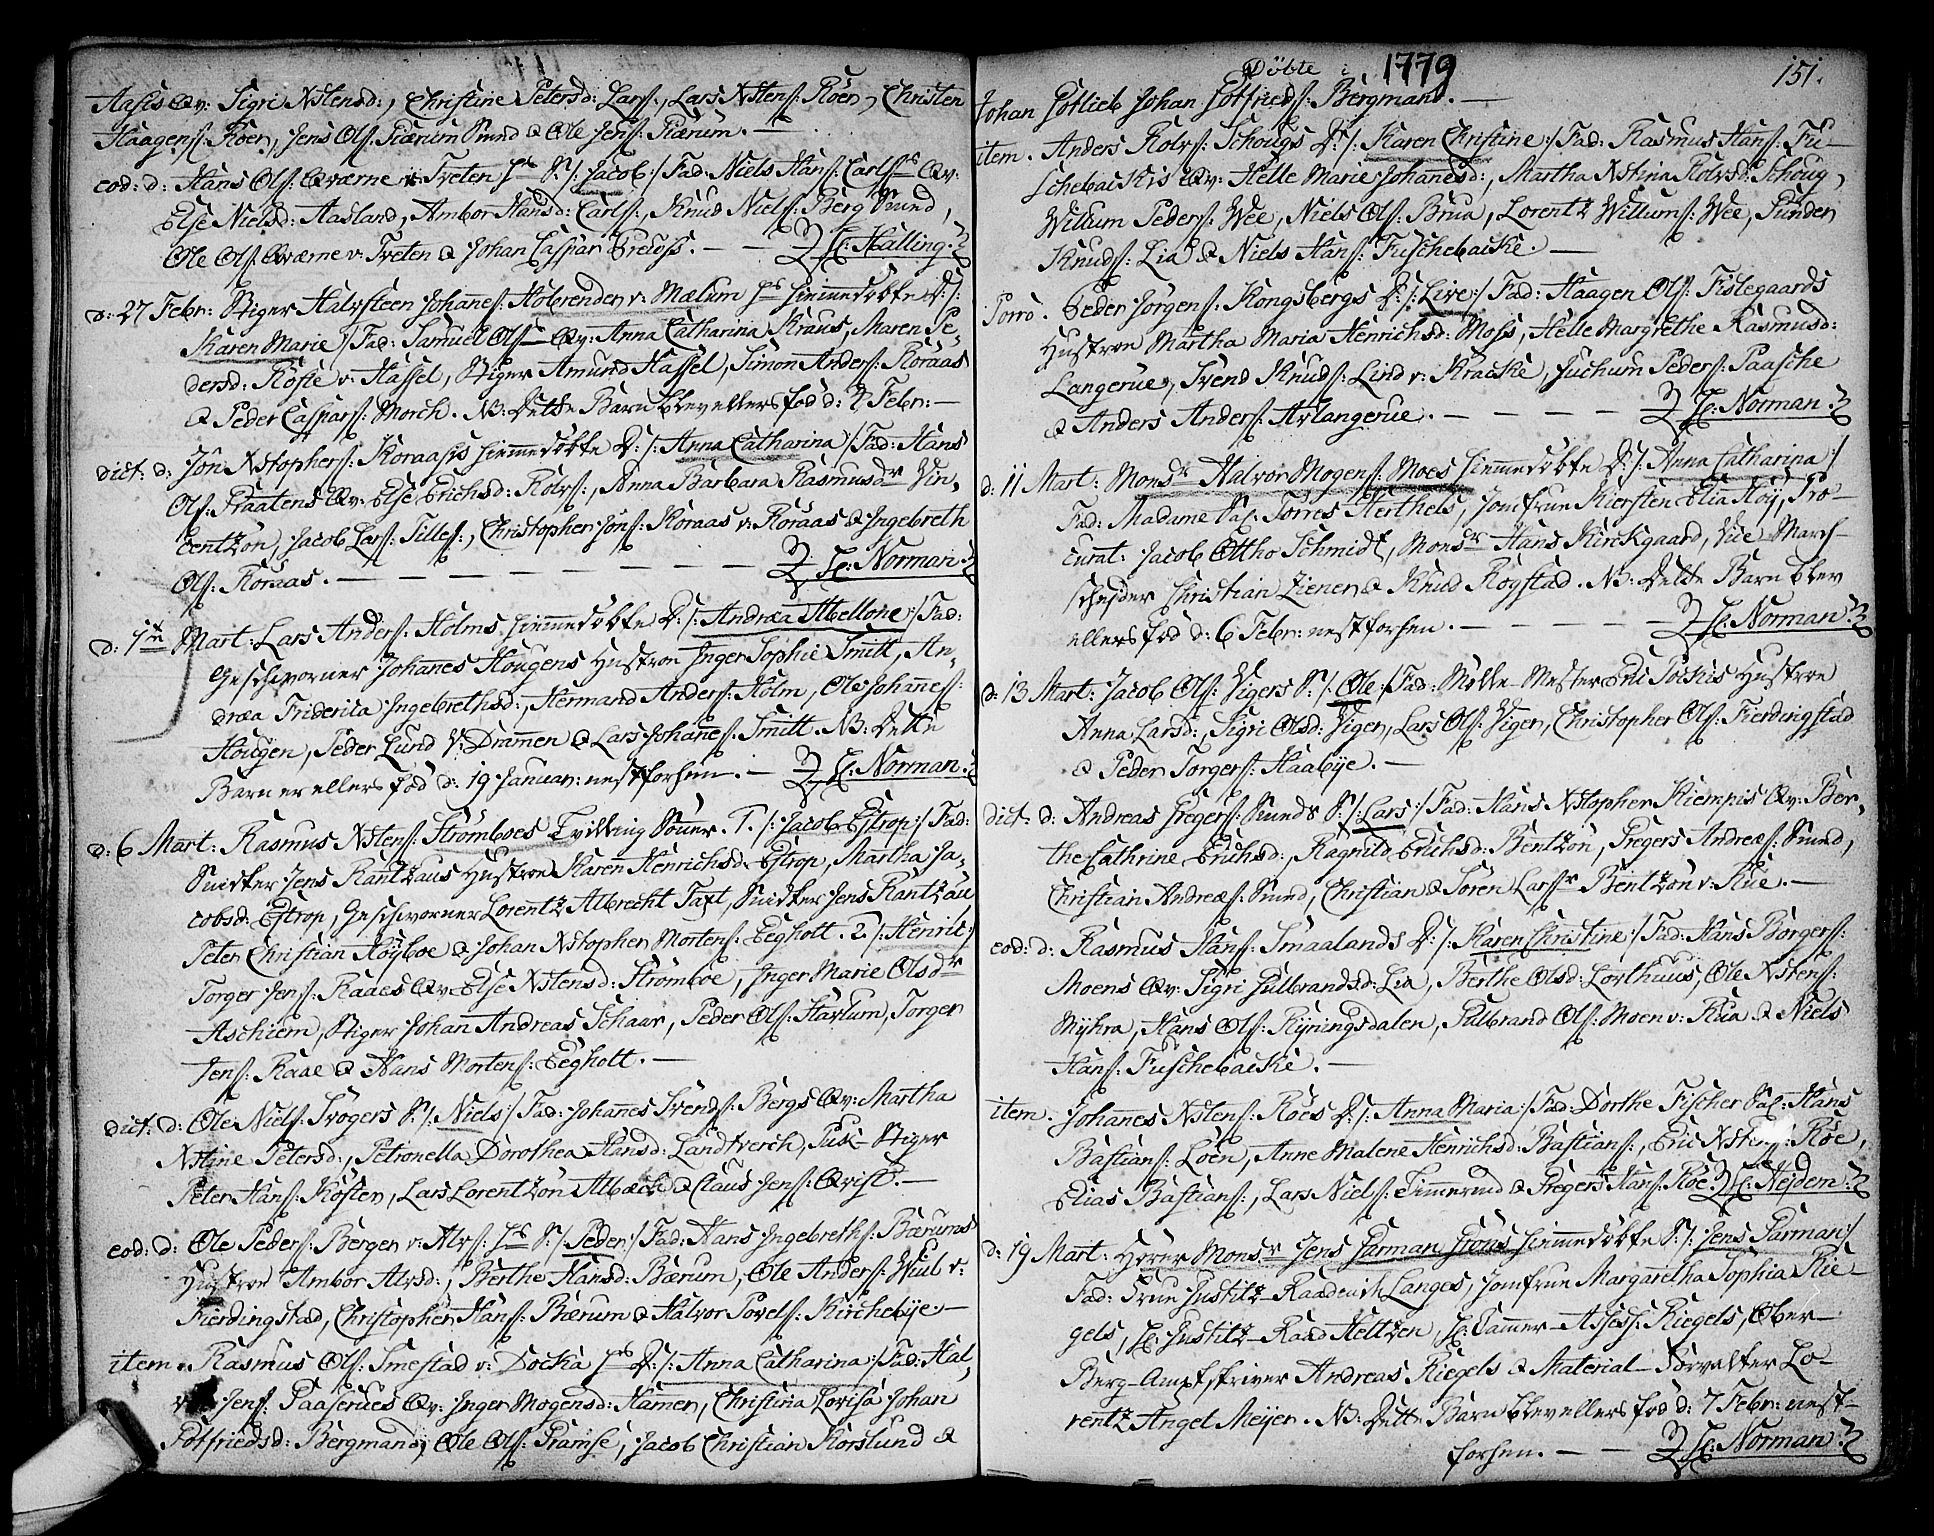 Aasis Qv: Sigri Xstensd:, Christine Petersd: Lars:, Lars Xstens: Röen, Christen
Haagens: Roen, Jens Ols: Bærum Smed & Ole Jens: Bærum. —
eod: d: Hans Ols: Qværne v: Tveten H S: /: Jacob:/ Fad: Niels Hans: Carls Qv:
Else Nielsd: Aasland, Ambor Hansd: Carls:, Knud Niels: Berg Smed,
Ole Ols: Qværne v: Tveten & Johan Caspar Bredoss. — — H: Halling.
d: 27 Febr: Stiger Halvsteen Johañes: Hobrenden v: Mælum hiemmedöbte D: /:
Karen Marie:/ Fad: Samuel Ols Qv: Anna Catharina Kraus, Maren Pe-
dersd: Röste v: Hassel, Stiger Amund Hassel, Simon Anders: Koraas
& Peder Caspars: Morch. NB: Dette Barn blev ellers föd d: 4 Febr: —
dict: d: Jön Xstophers: Koraases hiemmedöbte D: /: Anna Catharina:/ Fad: Hans
Ols: Praatens Qv: Else Erichsd: Rolvs:, Anna Barbara Rasmusdr Vin-
centzön, Jacob Lars: Tilles:, Christopher Jöns: Koraas v: Koraas & Ingebreth
Ols: Koraas. — — — — — — — H: Norman.
d: 1te Mart: Lars Anders: Holms hiemmedöbte D: /: Andræa Abellone:/ Fad:
Geschvorner Johanes Hougens Hustroe Inger Sophie Smitt, An-
dræa Friderica Ingebrethsd:, Hermand Anders: Holm, Ole Johañes:
Hougen, Peder Lund v: Dramen & Lars Johañes: Smitt. NB: Dette
Barn er ellers föd d: 19 Januar: nestforhen. — H: Norman.
d: 6 Mart: Rasmus Xstens: Strömboes Tvilling Söner. 1. /: Jacob Estrop:/ Fad:
Snidker Jens Rantzaus Hustroe Karen Henrichsd: Estrop, Martha Ja-
cobsd: Estrop, Geschvorner Lorentz Albrecht Taxt, Snidker Jens Rantzau
Peter Christian Höyboe & Johan Xstopher Mortens: Eegholt. 2. /: Henric:/
Torger Jens: Raaes Qv: Else Xstensd: Strömboe, Inger Marie Olsdr
Aschiem, Stiger Johan Andreas Schaar, Peder Ols: Havlum, Torger
Jens: Raae & Hans Mortens: Eegholt. —
dict: d: Ole Niels: Trogers S: /: Niels:/ Fad: Johañes Svends: Bergs Qv: Martha
Xstine Petersd:, Petronella Dorothea Hansd: Landtverch, Puk-Stiger
Peter Hans: Köster, Lars Lorentzön Albæck & Claus Jens: Qvist. —
eod: d: Ole Peders: Bergen v: Alvs: S: /: Peder:/ Fad: Hans Ingebreths: Bærums
Hustroe Ambor Alvsd:, Berthe Hansd: Bærum, Ole Anders: Wiul v:
Fierdingstad, Christopher Hans: Bærum & Halvor Povels: Kirchebÿe. —
item. Rasmus Ols: Smestad v: Docka D: /: Anna Catharina:/ Fad: Hal-
Jens: Paaserudes Qv: Inger Mogensd: Hamer, Christina Lovisa Johan
Gotfriedsd: Bergmand, Ole Ols: Bramse, Jacob Christian Korslund &
Döbte i 1779 151.
Johan Gotlieb Johan Gotfrieds: Bergmand. —
item. Anders Rolvs: Schougs D: /: Karen Christine:/ Fad: Rasmus Hans: Fu-
schebackis Qv: Helle Marie Johañesd:, Martha Xstina Rolvsd: Schoug,
Willum Peders: Wee, Niels Ols: Brua, Lorentz Willums: Wee, Gunder
Knuds: Lia & Niels Hans: Fuschebacke. —
Porro. Peder Jörgens: Kongsbergs D: /: Live:/ Fad: Haagen Ols: Fislegaards
Hustroe Martha Maria Henrichsd: Moss, Helle Margrethe Rasmusd:
Langerue, Svend Knuds: Lind v: Kracke, Juchum Peders: Paasche
& Anders Anders: Avlangerue. — — — — H: Norman.
d: 11 Mart: Monsr Halvor Mogens: Moes hiemmedöbte D: /: Anna Catharina:/
Fad: Madame Sal: Torres Herthels, Jomfrue Kiersten Elia Höÿ, Pro-
curat: Jacob Ottho Schmidt, Monsr Hans Kirckgaard, Vice March-
scheider Christian Ziener & Knud Rogstad. NB: Dette Barn blev
ellers föd d: 6 Febr: nestforhen. — — — — H: Norman.
d: 13 Mart: Jacob Ols: Vigers S: /: Ole:/ Fad: Mölle-Mester Poickis Hustroe
Anna Larsd:, Sigri Olsd: Viger, Lars Ols: Viger, Christopher Ols: Fierdingstad
& Peder Torgers: Haabÿe. —
dict: d: Andreas Gregers: Smeds S: /: Lars:/ Fad: Hans Xstopher Kiempis Qv: Ber-
the Cathrine Erichsd:, Ragnild Erichsd: Bentzön, Gregers Andreæs: Smed,
Christian Andreæs: Smed, Christian & Sören Lars Bentzön v: Rue. —
eod: d: Rasmus Hans: Smaalands D: /: Karen Christine:/ Fad: Hans Börgers:
Moens Qv: Sigri Gulbrandsd: Lia, Berthe Olsd: Lorthuus, Ole Xstens:
Mÿhra, Hans Ols: Rÿningsdalen, Gulbrand Ols: Moen v: Rua & Niels
Hans: Fuschebacke. —
item. Johanes Xstens: Röes D: /: Anna Maria:/ Fad: Dorthe Fischer Sal: Hans
Bastians: Löen, Anne Malene Henrichsd: Bastians:, Eric Xstens: Röe,
Elias Bastians:, Lars Niels: Timmerud & Gregers Hans: Röe. H: Neÿdem.
d: 19 Mart: Hörer Monsr Jens Garman Gröns hiemmedöbte S: /: Jens Garman:/
Fad: Frue Justitz-Raadinde Langes, Jomfrue Margaretha Sophia Rie-
gels, H: Justitz-Raad Heltzen, H: Cammer-Assess: Riegels, Ober-
Berg-Amptskriver Andreas Riegels & Material-Forvalter Lo-
rentz Angel Meÿer. NB: Dette Barn blev ellers föd d: 7 Febr: nest-
forhen. — — H: Norman.